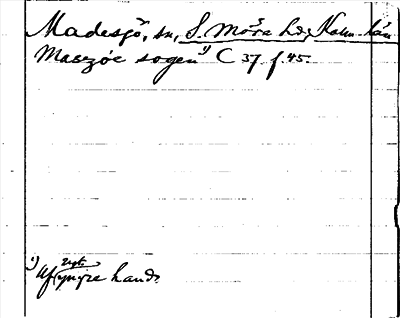 Madesjö, sn, S. Möre hd, Kalm. län
Maszöe sogen ¹) C 37 f. 45.
¹) Af yngre hand.